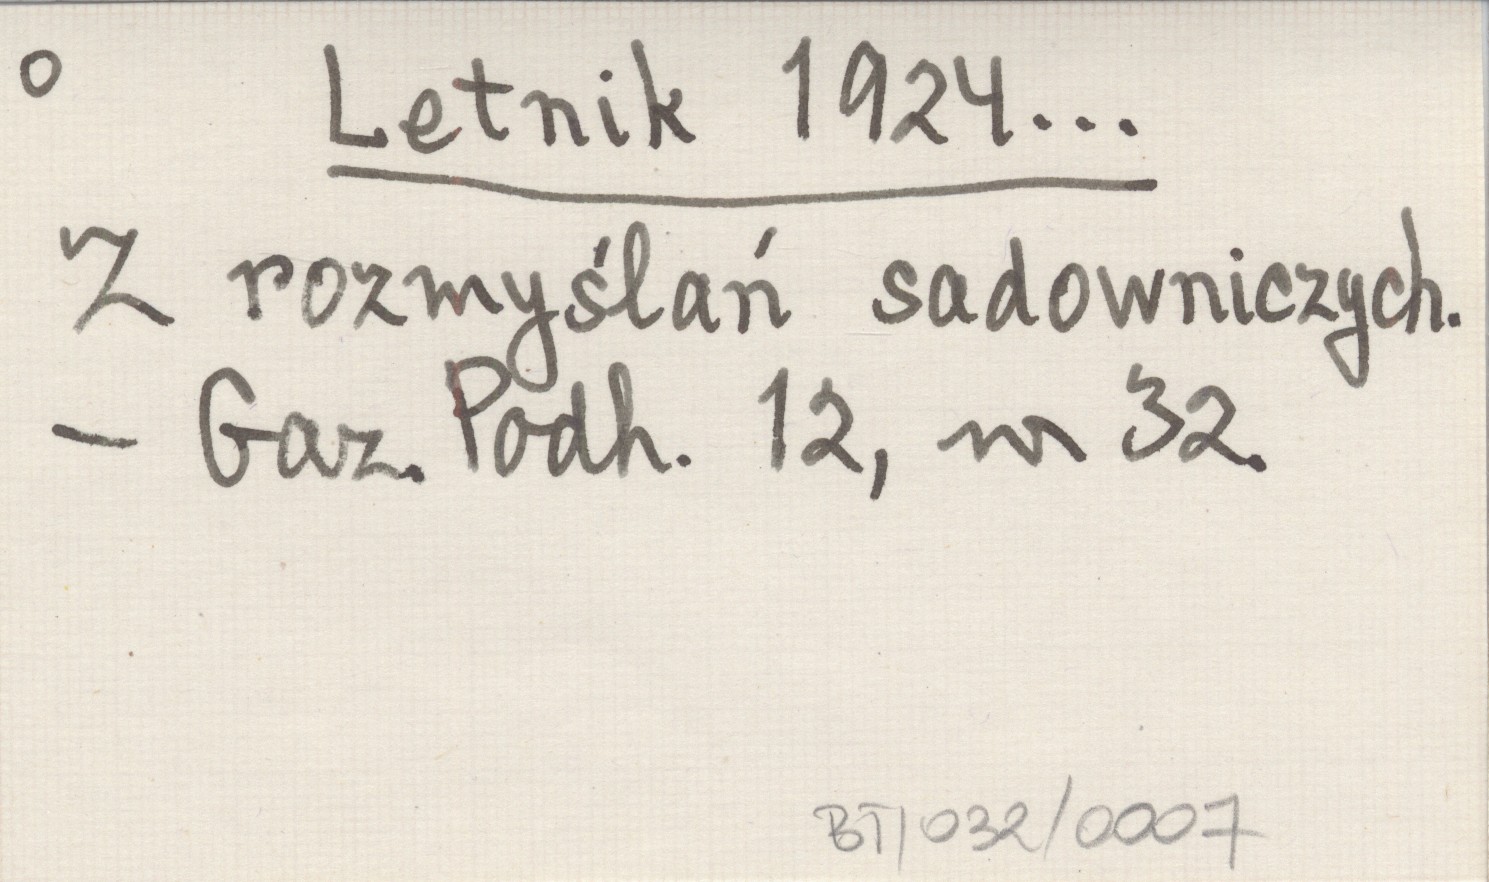 o Letnik 1924...
Z rozmyślań sadowniczych.
– Gaz. Podh. 12, nr 32.
BT/032/0007